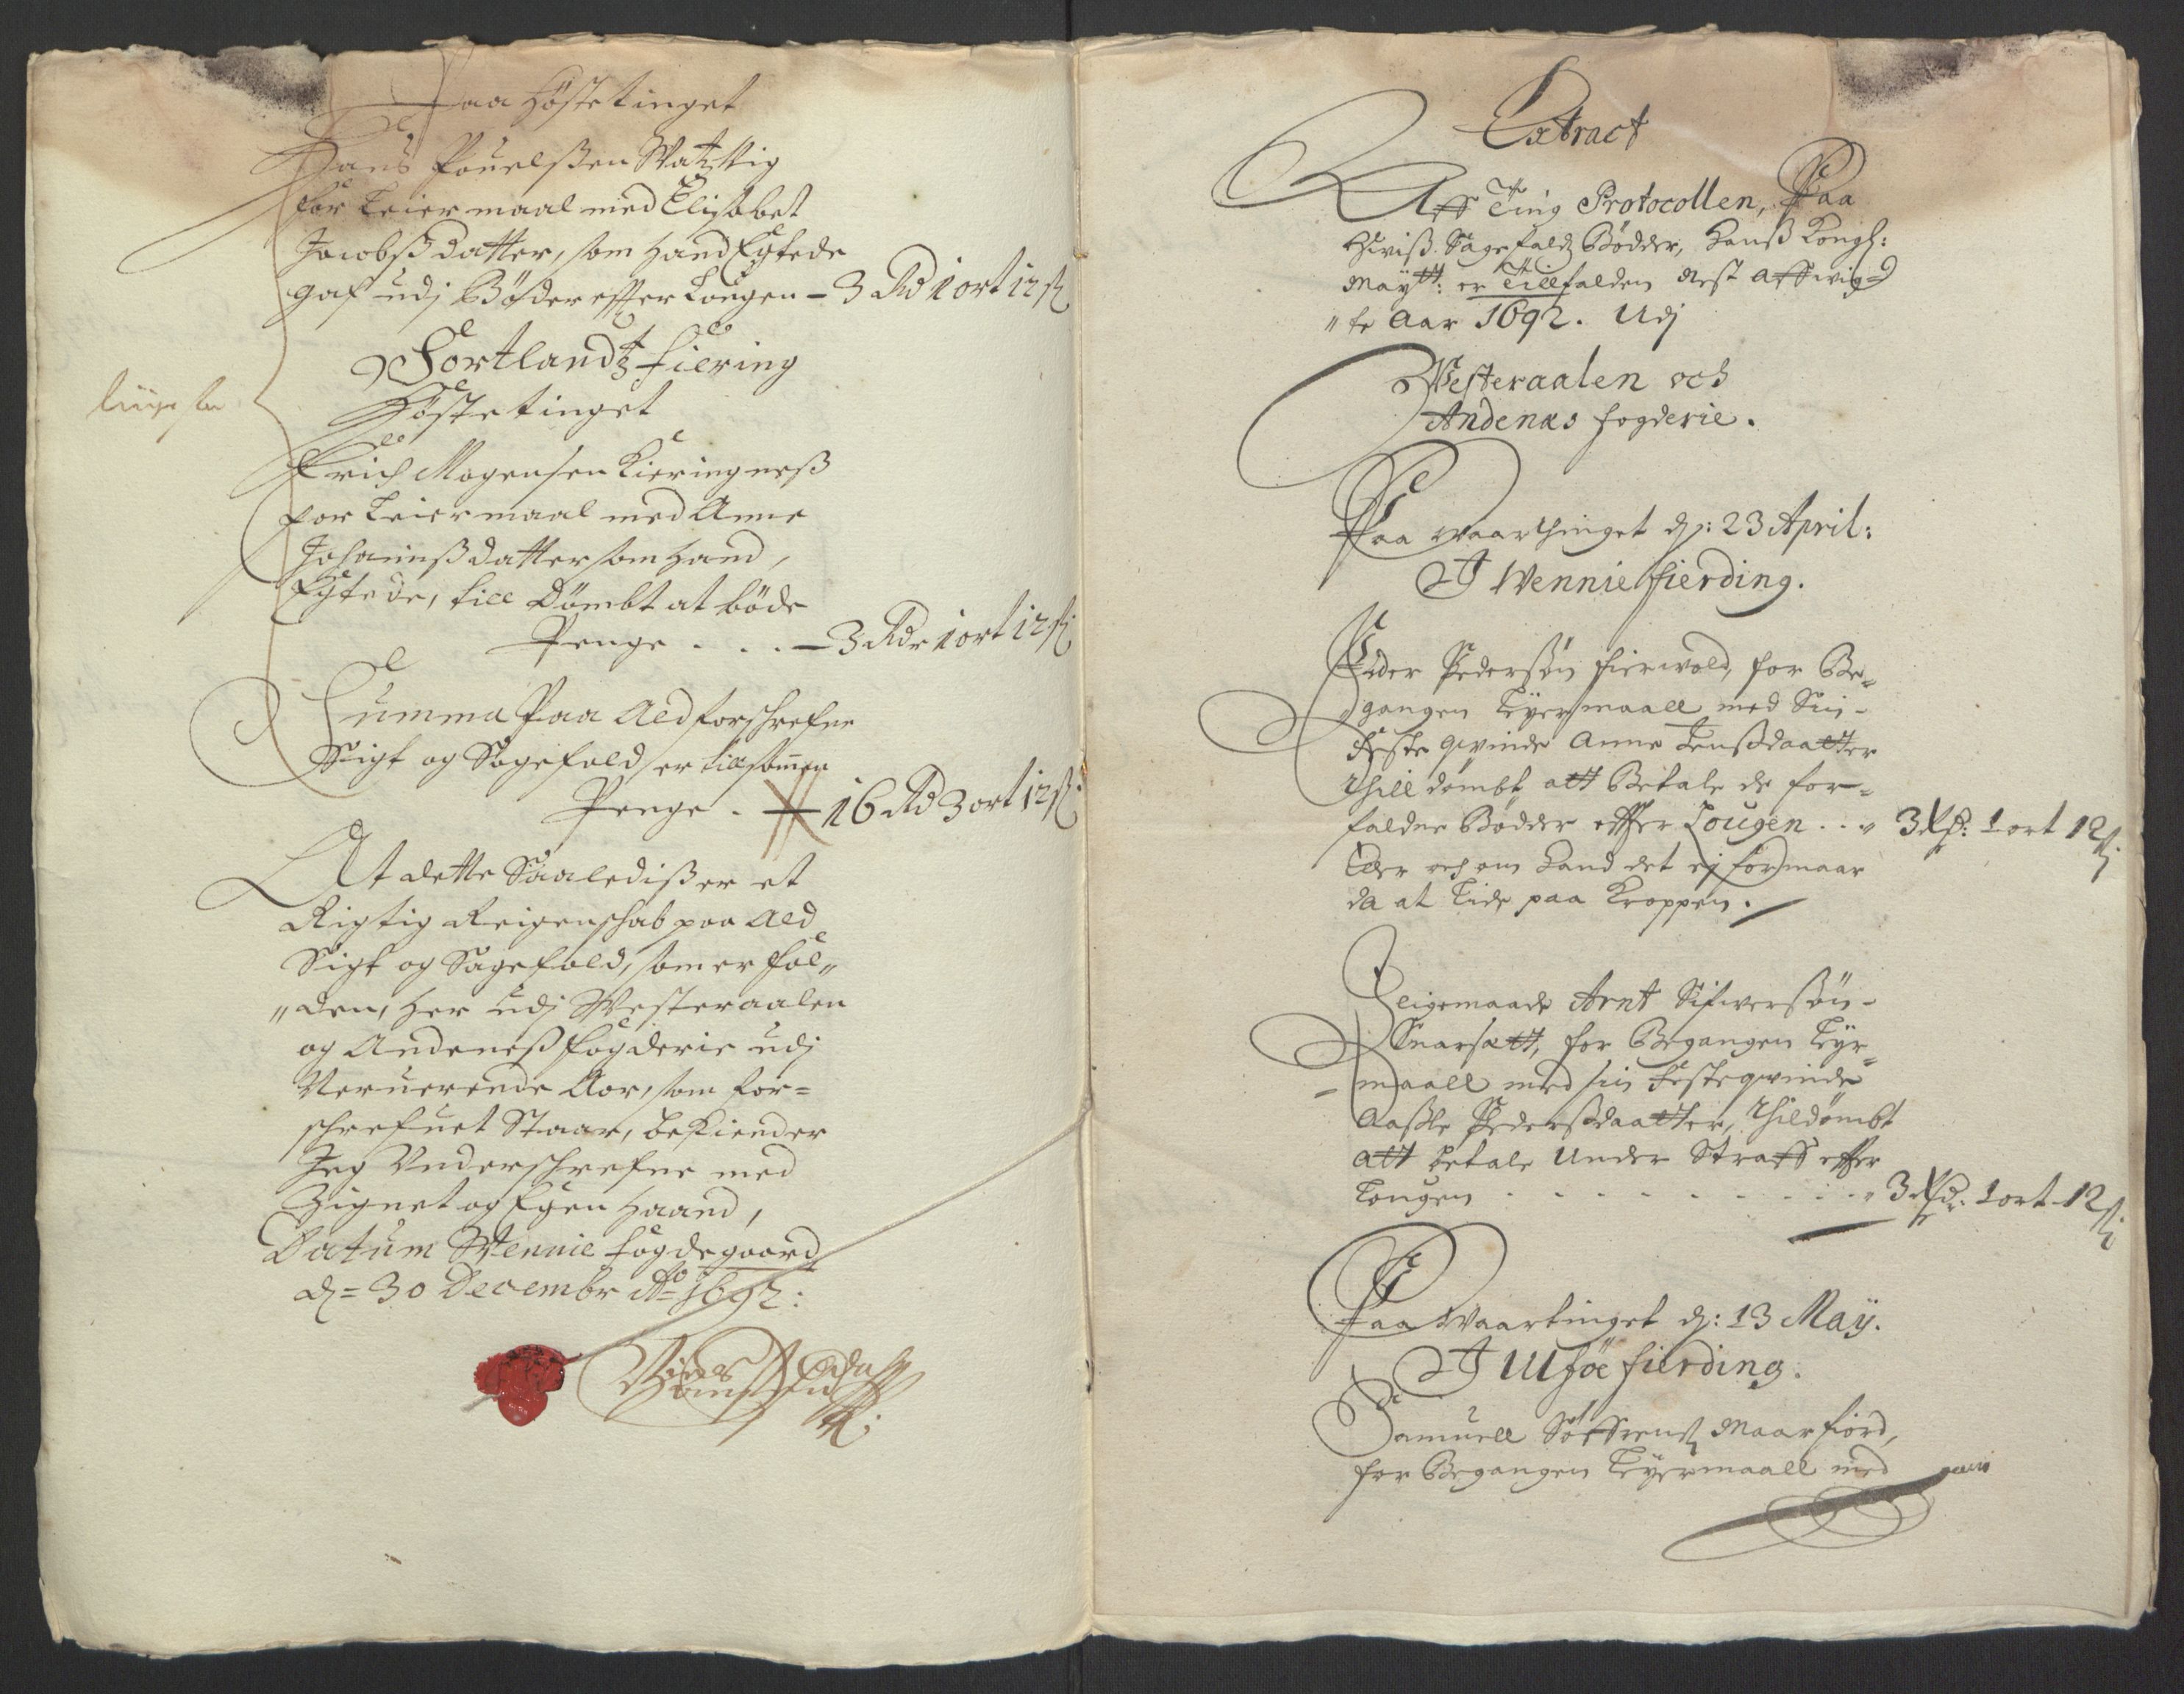 Paa Höstetinget
Hans Pouelßen
for Leiermaal med Elisabet
Jacobßdatter, som hand Egtede
gaf udj Böder efter Lougen - 3 Rd 1 ort 12 ß
Sortlandtz fiering
Höstetinget
Erich Mogensen Kieringneß
for Leiermaal med Anne
Johanneßdatter som hand,
Egtede, till Dömbt at böde
Penge . . . - 3 Rdr 1 ort 12 ß
Summa Paa Ald forschrefne
Sigt og Sagefald er tillsammen
Penge . 16 Rd 3 ort 12 ß
At dette Saaledißer et
Rigtig Reigenschab paa Ald
Sigt og Sagefald, som er fal„
„den, her udj Westeraalen
og Andeneß fogderie udj
Neruerende Aar, som for=
schrefuet Staar, bekiender
Jeg Vnderschrefne med
Zignet og Egen Haand,
Datum Wennie fogdegaard
d: = 30 Decembr Ao 1692:
Extract
Aff Ting Protocollen, Paa
Hviß Sagefaldz Bödder, Hanß Kongl:
Maytt: er Tillfalden Nest Affwig=
„te Aar 1692. Udj
Westeraalen och
Andenæs fogderie.
Paa Waarthinget d: 23 April:
I Wennie fierding.
Peder Pedersön Fierwold, for Be=
gangen Leyermaall med Sin
Feste qvinde Anne Jenßdaatter
thill dömbt att Betale de for=
faldne Bödder effter Lougen . . „ 3 Rd: 1 ort 12 ß
Eller och om Hand det ej formaar
da at Lide paa Kroppen.
Ligemaade Arnt Sifwersön
Snarsætt, for Begangen Leyr=
maall med sin Festeqvinde
Aaßle Pederßdaatter, thildömbt
att betale Under Straff effter
Lougen . . . . . . . . . „ 3 Rd: 1 ort 12 ß
Paa Waartinget d: 13 May.
I Ulföe fierding.
Samuell Söffrenß Maarfiord,
for Begangen Leyermaall med